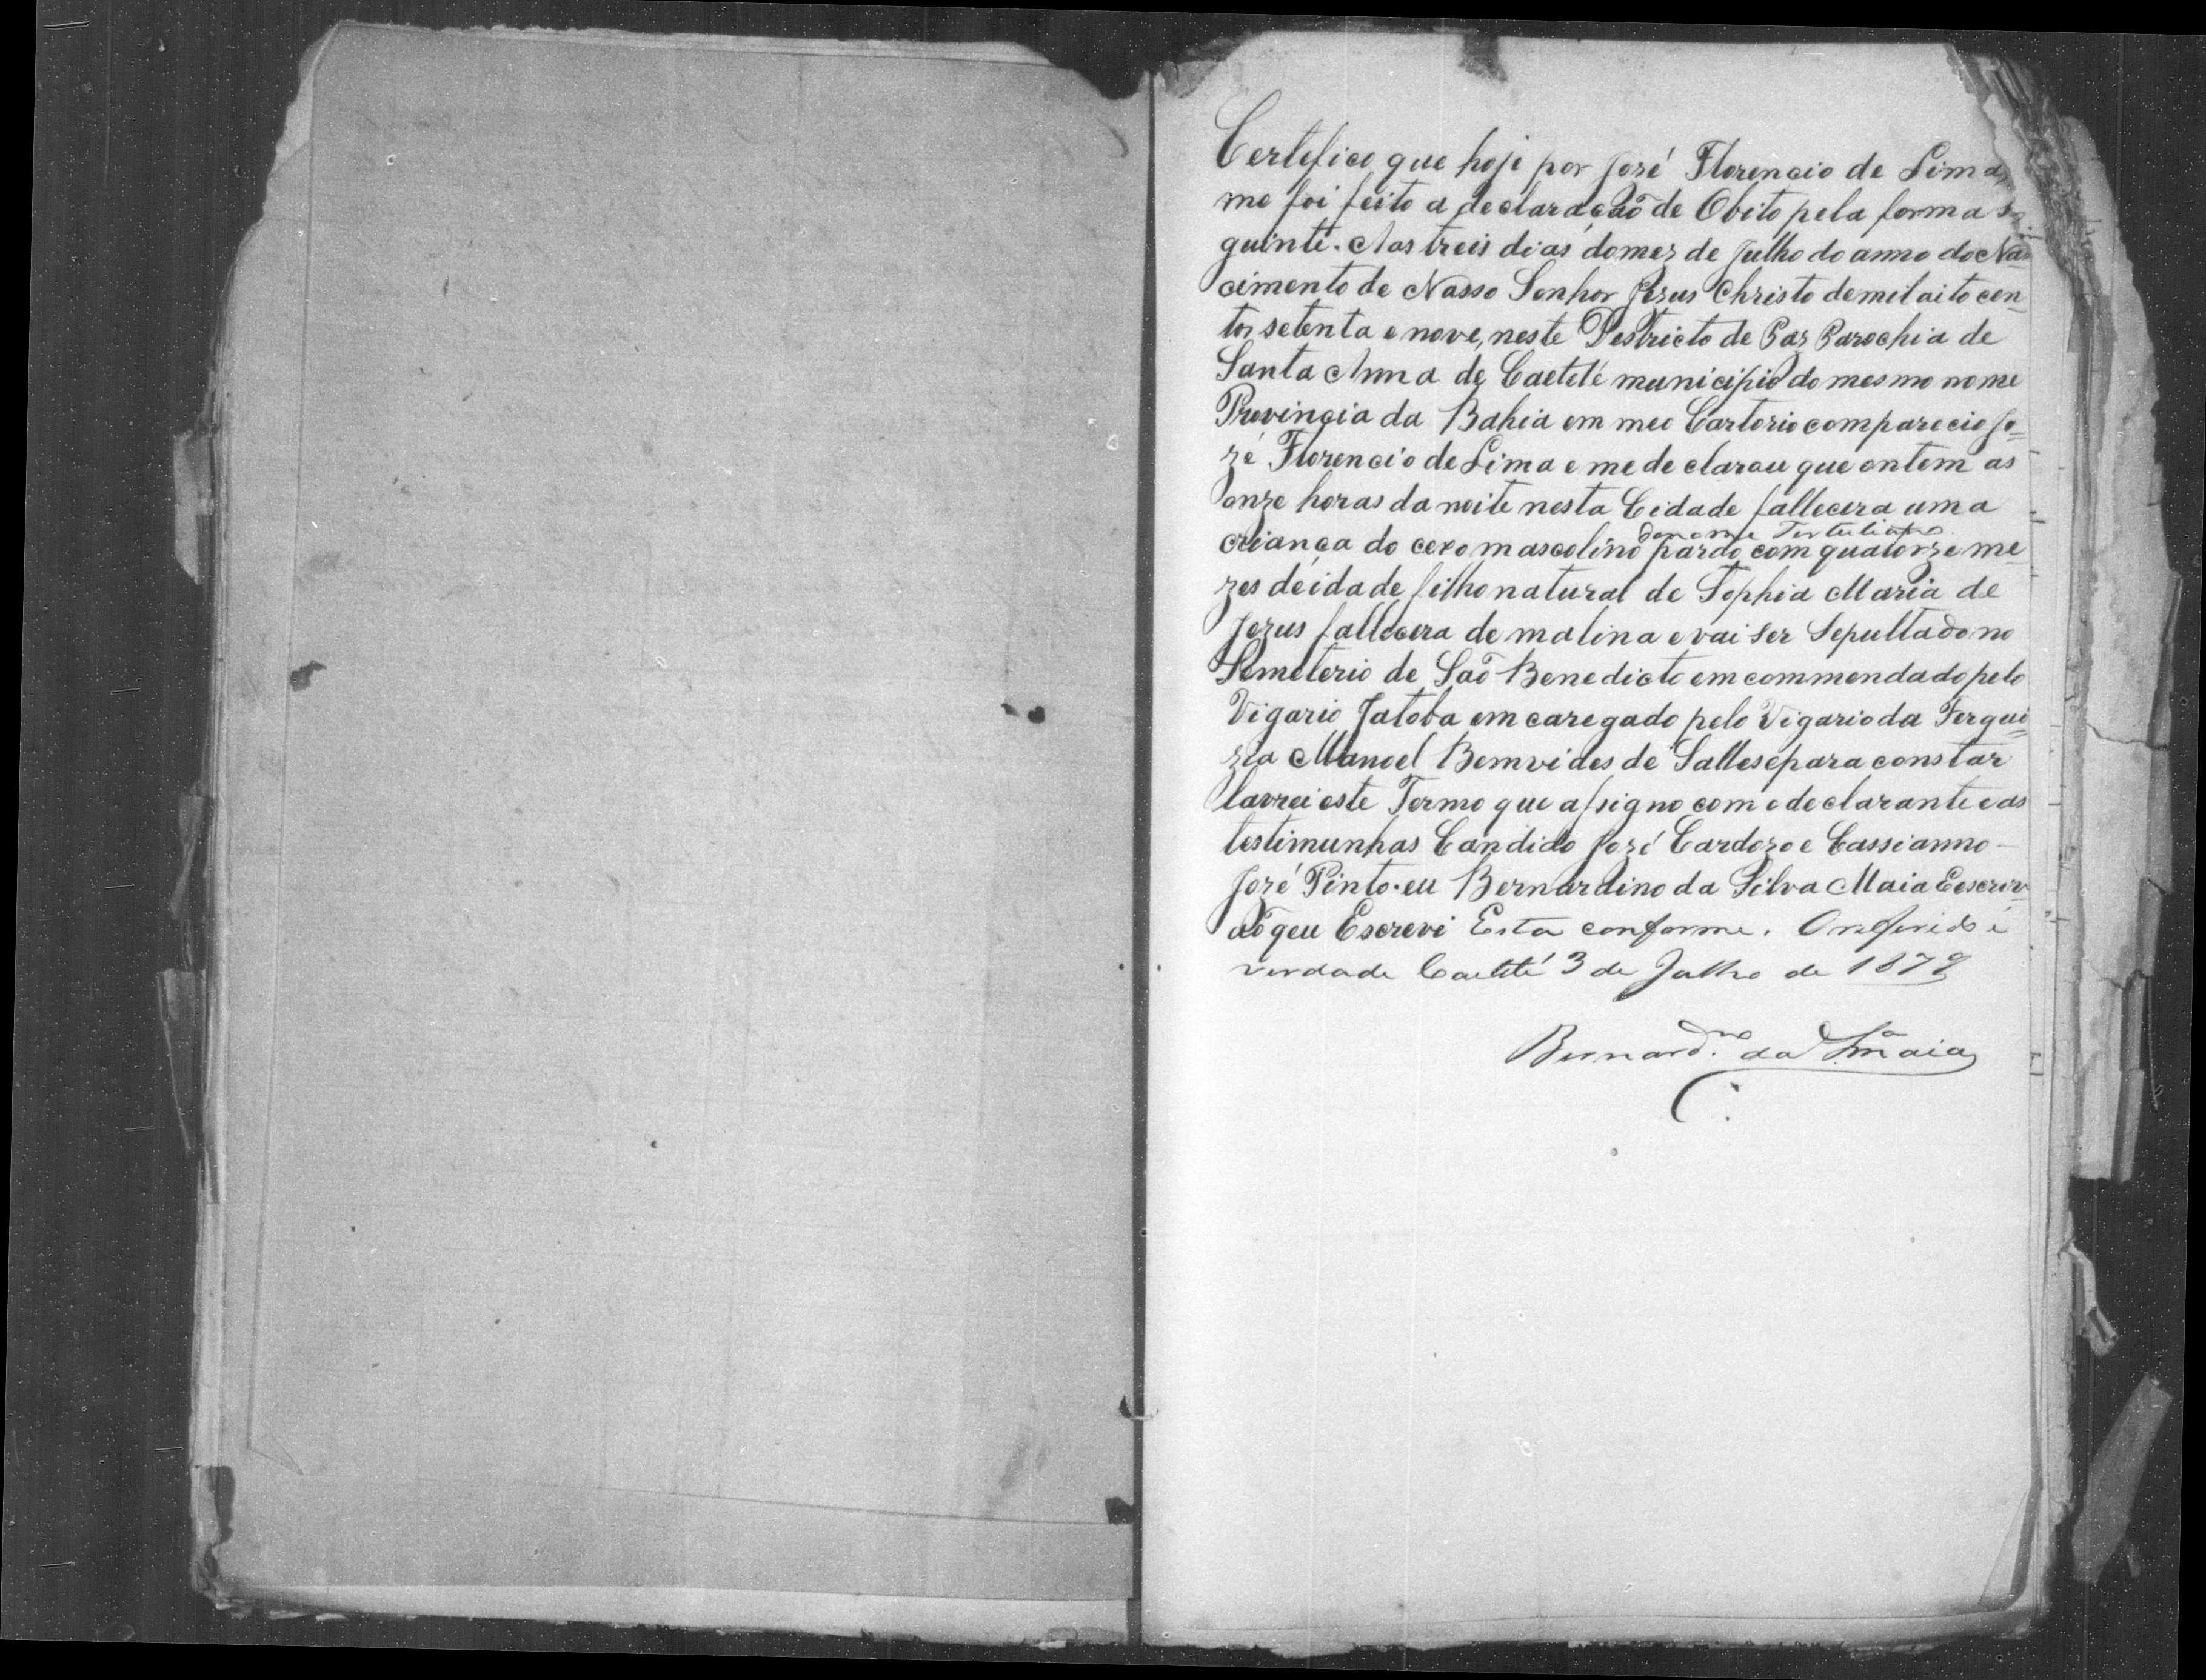 Certefico que hoje por José Florencio de Lima
me foi feito a declaração de Obito pela forma se
guinte. Aos treis dias domez de Julho do anno do Nas
cimento de Nosso Senhor Jezus Christo demil oito cen
tos setenta e nove, neste Destricto de Paz Parochia de
Santa Anna de Caeteté municipio do mesmo nome
Provincia da Bahia em meo Cartorio comparecio Jo
zé Florencio de Lima e me declarou que ontem as
onze horas da noite nesta Cidade fallecera uma
de nome Tertuliano
criança do cexo mascolino pardo com quatorze me
zes de idade filho natural de Sophia Maria de
Jezus fallecera de malina e vai ser Sepultado no
Semeterio de São Benedicto emcommendado pelo
Vigario Jatoba em caregado pelo Vigario da Fergui
zia Manoel Bemvides de Salles e para constar
lavrei este Termo que assigno com o declarante e as
testimunhas Candido José Cardozo e Cassianno
José Pinto. eu Bernardino da Silva Maia Escriv
ão qeu Escrevi Esta conforme. O referido é
verdade Caeteté 3 de Julho de 1879
Bernard.no da Sa Maia